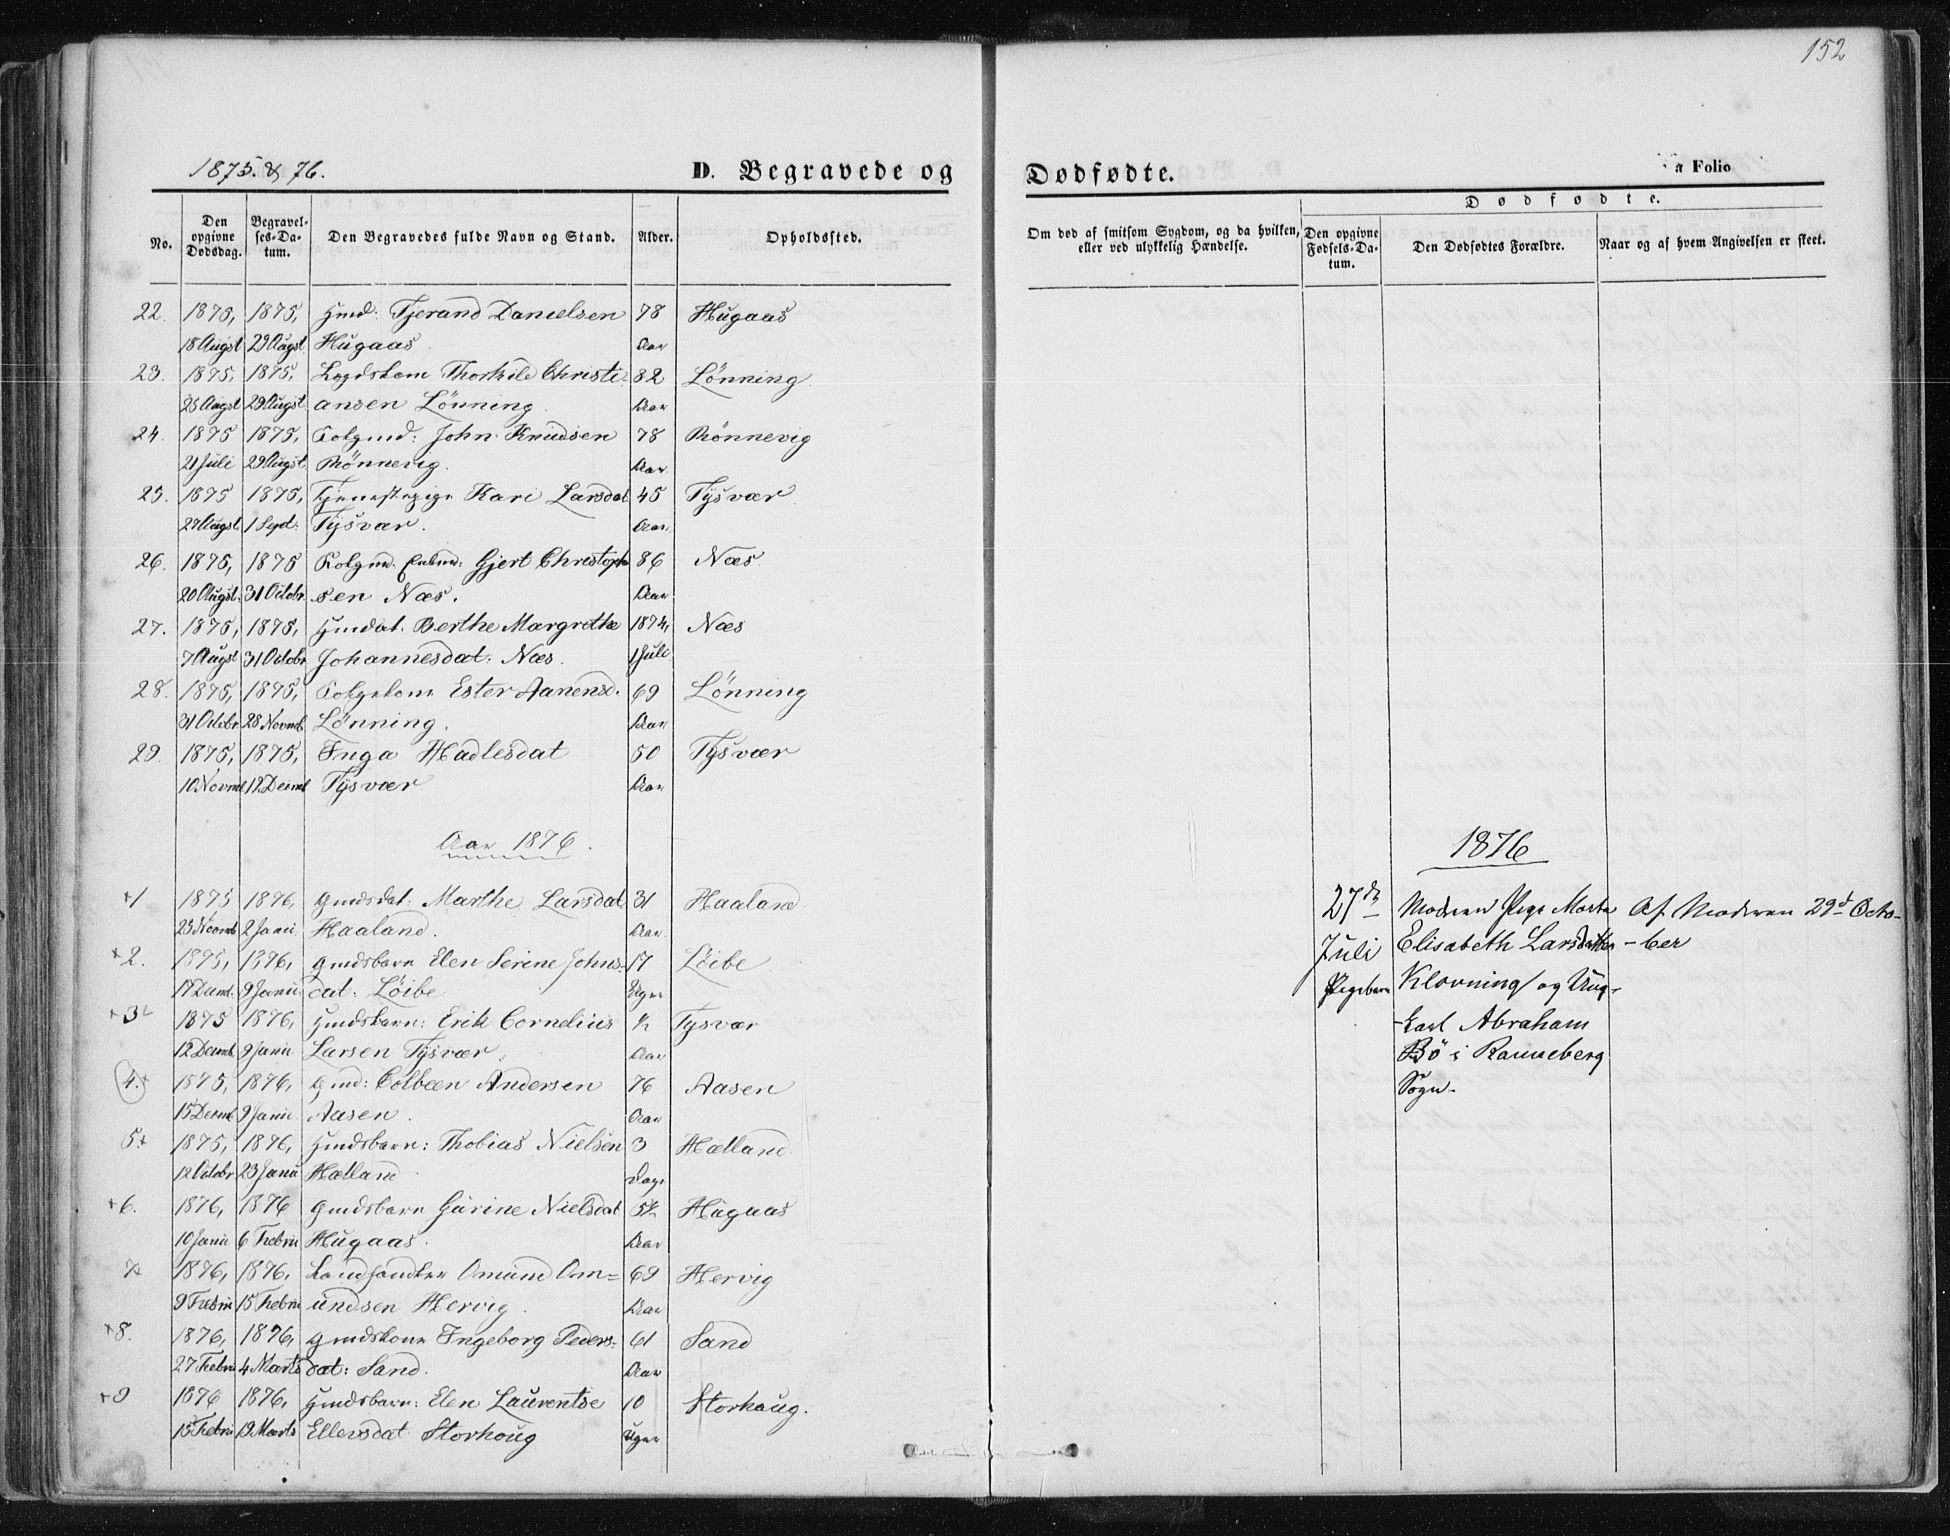 152
1875. & 76.
D. Begravede og
Dødfødte.
a Folio
No.
Den opgivne Dødsdag.
Begravelses-Datum.
Den Begravedes fulde Navn og Stand.
Alder.
Opholdssted.
Om død af smitsom Sygdom, og da hvilken, eller ved ulykkelig Hændelse.
Dødfødte.
Den opgivne Fødsels-Datum.
Den Dødfødtes Forældre.
Naar og af hvem Angivelsen er skeet.
22. 1875, 1875, Gmd: Tjerand Danielsen 78 Hugaas
18 Augst 29 Augst Hugaas Aar
23. 1875, 1875, Lægdslem Thorkild Christi- 82 Lönning
25 Augst 29 Augst ansen Lönning Aar
24. 1875 1875, Folgmd: John Knudsen 78 Rönnevig
21 Juli 29 Augst Rönnevig. Aar
25. 1875 1875, Tjenestepige Kari Larsdat 45 Tysvær
27 Augst 1 Sept. Tysvær. Aar
26. 1875, 1875 Folgmd. Enkm: Gjert Christoph 86 Næs
20 Augst. 31 Octobr sen Næs. Aar
27. 1875, 1875, Gmdat. Berthe Margrethe 1874, Næs
7 Augst 31 Octobr Johannesdat. Næs. 1 Juli
28. 1875, 1875, Folgekone Ester Aanensd. 69 Lönning
31 Octobr 28 Novmb Lønning. Aar
29. 1875, 1875, Inga Hadlesdat 50 Tysvær
10 Novmb 12 Decmb Tysvær Aar
Aar 1876.
1876
+1 1875 1876, Gmdsdat: Marthe Larsdat 31 Haaland
25 Novmb 2 Janu Haaland. Aar
+2. 1875, 1876, Gmdsbarn Elen Serine Johns- 17 Löibe
17 Decmb. 9 Janu dat: Löibe Uger
+3 1875 1876, Gmdsbarn: Erik Cornelius ½ Tysvær
12 Decmb. 9 Janu Larsen Tysvær. Aar
4.+ 1875, 1876, Gmd: Colbeen Andersen 76 Aasen
15 Decmb 9 Janu Aasen. Aar
5+ 1875, 1876, Gmdsbarn: Thobias Nielsen 3 Hælland
12 Octobr 23 Janu Hælland Dage
+6. 1876, 1876 Gmdsbarn Gurine Nielsdat 5½ Hugaas
10 Janu 6 Febru Hugaas. Aar
7+ 1876, 1876, Landhandler Omund Om= 69 Hervig
9 Febru 15 Febru undsen Hervig. Aar
+8. 1876, 1876, Gmdskone Ingeborg Peders- 61 Sand
27 Febru 4 Marts dat: Sand. Aar
+9 1876 1876, Gmdsbarn: Elen Laurentse 10 Storhaug.
15 Febru 19 Marts Ellersdat Storhoug Uger
27de Moderen Pige Marta Af Moderen 29d Octo-
Juli Elisabeth Larsdatter -ber
Pigebarn Klovning og Ung-
-karl Abraham
Bö i Ranneberg
Sogn-